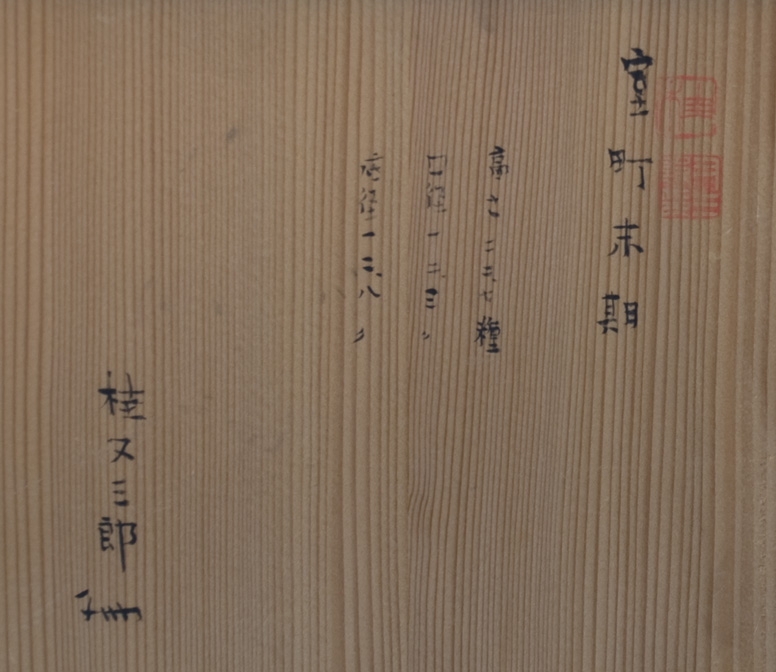 室町末期
高さ二三、七糎
口径一二、三〃
底径一三、八〃
桂又三郎